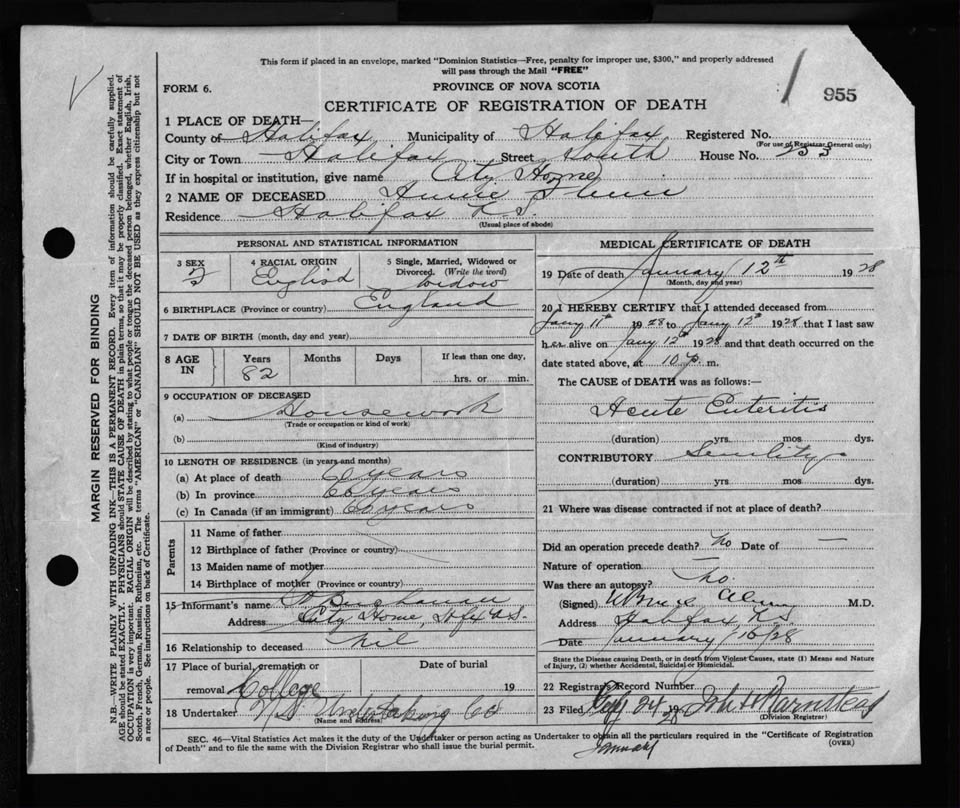 This form if placed in an envelope, marked "Dominion Statistics—Free, penalty for improper use, $300," and properly addressed
will pass through the Mail "FREE"
FORM 6.
PROVINCE OF NOVA SCOTIA
955
CERTIFICATE OF REGISTRATION OF DEATH
1 PLACE OF DEATH—
County of Halifax Municipality of Halifax Registered No.
(For use of Registrar General only)
City or Town Halifax Street South House No. 255
If in hospital or institution, give name City Home
2 NAME OF DECEASED Annie
Residence Halifax N.S.
(Usual place of abode)
PERSONAL AND STATISTICAL INFORMATION
3 SEX
F
4 RACIAL ORIGIN
English
5 Single, Married, Widowed or
Divorced. (Write the word)
Widow
6 BIRTHPLACE (Province or country) England
7 DATE OF BIRTH (month, day and year)
8 AGE
IN
Years
82
Months
Days
If less than one day,
hrs. or min.
9 OCCUPATION OF DECEASED
(a) Housework
(Trade or occupation or kind of work)
(b)
(Kind of industry)
10 LENGTH OF RESIDENCE (in years and months)
(a) At place of death 60 years
(b) In province 60 years
(c) In Canada (if an immigrant) 60 years
Parents
11 Name of father
12 Birthplace of father (Province or country)
13 Maiden name of mother
14 Birthplace of mother (Province or country)
15 Informant's name Buchanan
Address City Home, Hfx N.S.
16 Relationship to deceased nil
17 Place of burial, cremation or
removal College
Date of burial
19
18 Undertaker N S Undertaking Co
(Name and address)
MEDICAL CERTIFICATE OF DEATH
19 Date of death January 12th 1928
(Month, day and year)
20 I HEREBY CERTIFY that I attended deceased from
Jany 11th 1928 to Jany 12th 1928 that I last saw
her alive on Jany 12th 1928 and that death occurred on the
date stated above, at 10 p. m.
The CAUSE of DEATH was as follows:—
Acute Enteritis
(duration) yrs. mos dys.
CONTRIBUTORY Senility
(duration) yrs. mos. dys.
21 Where was disease contracted if not at place of death?
Did an operation precede death? No Date of —
Nature of operation —
Was there an autopsy? No.
(Signed) M.D.
Address Halifax N.S.
Date January 16/28
State the Disease causing Death, or in death from Violent Causes, state (1) Means and Nature
of Injury, (2) whether Accidental, Suicidal or Homicidal.
22 Registrars Record Number
23 Filed 24 1928 John
(Division Registrar)
SEC. 46—Vital Statistics Act makes it the duty of the Undertaker or person acting as Undertaker to obtain all the particulars required in the "Certificate of Registration
of Death" and to file the same with the Division Registrar who shall issue the burial permit.
(OVER)
MARGIN RESERVED FOR BINDING
N.B.—WRITE PLAINLY WITH UNFADING INK—THIS IS A PERMANENT RECORD. Every item of information should be carefully supplied.
AGE should be stated EXACTLY. PHYSICIANS should STATE CAUSE OF DEATH in plain terms, so that it may be properly classified. Exact statement of
OCCUPATION is very important. RACIAL ORIGIN will be described by stating to what people or tongue the deceased person belonged, whether English, Irish,
Scotch, French, German, Russian, Ruthenian, etc. The terms "AMERICAN" or "CANADIAN" SHOULD NOT BE USED as they express citizenship but not
a race or people. See instructions on back of Certificate.